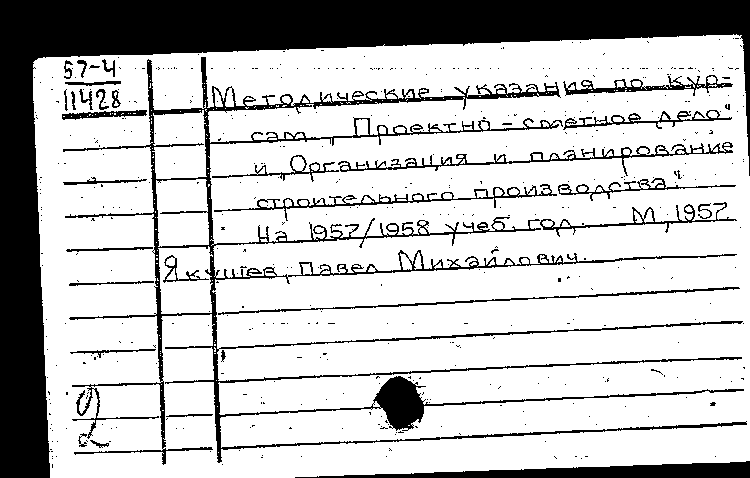 57-4
11428
Методические указания по кур-
сам „Проектно-сметное дело"
и „Организация и планирование
строительного производства".
На 1957/1958 учеб. год. М, 1957
Якушев, Павел Михайлович.
2